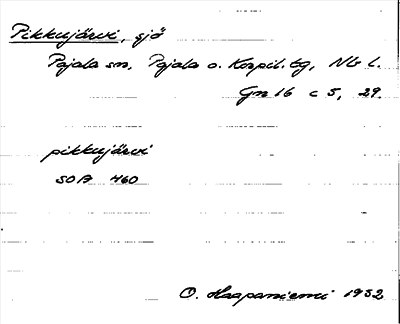 Pikkujärvi, sjö
Pajala sn, Pajala o. Korpil. tg, Nb l.
Gn 16 c 5, 29.
pikkujärvi
SOA 460
O. Haapaniemi 1932